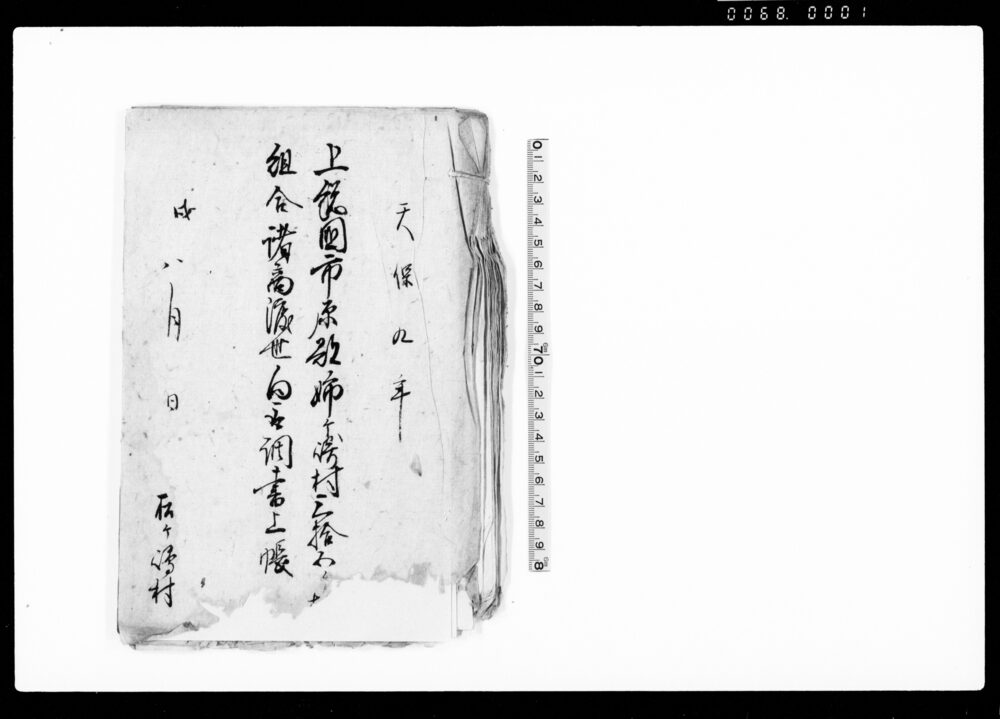 0068. 0001
天保九年
上総国市原郡姉ヶ崎村三拾五ヶ村
組合諸商渡世向名調書上帳
戌八月 日
姉ヶ崎村
0 1 2 3 4 5 6 7 8 9 70 1 2 3 4 5 6 7 8 9 8